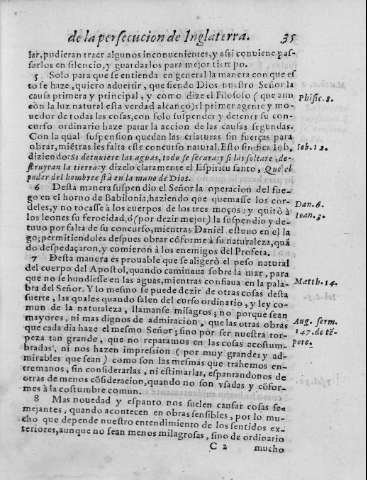 de la persecucion de Inglaterra. 35
lar, pudieran traer algunos inconuenientes, y assi conuiene pas-
sarlos en silencio, y guardarlos para mejor tiempo.
5 Solo para que se entienda en general la manera con que es
to se haze, quiero aduertir, que siendo Dios nuestro Señor la
causa primera y principal, y como dize el Filosofo (que aun
cõn la luz natural esta verdad alcançò) el primer agente y mo-
uedor de todas las cosas, con solo suspender y detener su con-
curso ordinario haze parar la accion de las causas segundas.
Con la qual suspension quedan las criaturas sin fuerças para
obrar, miẽtras les falta este concurso natural. Esto sinifica Iob,
diziendo: Si detuuiere las aguas, todo se secara: y si las soltare, de-
struyran la tierra: y dizelo claramente el Espiritu santo, Que el
poder del hombre stà en la mano de Dios.
6 Desta manera suspendio el Señor la operacion del fue-
go en el horno de Babilonia, haziendo que quemasse los cor-
deles, y no tocasse à los cuerpos de los tres moços: y quitò à
los leones su ferocidad, ò (por dezir mejor) la suspendio y de-
tuuo por falta de su concurso, mientras Daniel estuuo en el la
go; permitiendoles despues obrar cõforme à su naturaleza, quã
do despedaçaron, y comieron à los enemigos del Profeta.
7 Desta manera es prouable que se aligerò el peso natural
del cuerpo del Apostol, quando caminaua sobre la mar, para
que no se hundiesse en las aguas, mientras confiaua en la pala-
bra del Señor. Y lo mesmo se puede dezir de otras cosas desta
suerte, las quales quando salen del curso ordinario, y ley co-
mun de la naturaleza, llamanse milagros; no porque sean
mayores, ni mas dignos de admiracion, que las otras obras
que cada dia haze el mesmo Señor; sino por ser nuestra tor-
peza tan grande, que no reparamos en las cosas acostum-
bradas, ni nos hazen impression (por muy grandes y ad-
mirables que sean) como son las mesmas que trahemos en-
tremanos, sin considerarlas, ni estimarlas, espantandonos de
otras de menos cõsideracion, quando no son vsadas y cõfor-
mes à la costumbre comun.
8 Mas nouedad y espanto nos suelen causar cosas se-
mejantes, quando acontecen en obras sensibles, por lo mu-
cho que depende nuestro entendimiento de los sentidos ex-
teriores, aunque no sean menos milagrosas, sino de ordinario
C 2 mucho
Phisic. 8.
Iob. 12.
Dan. 6.
Ioan. 3.
Matth. 14.
Aug. serm.
147. de tẽ-
pore.